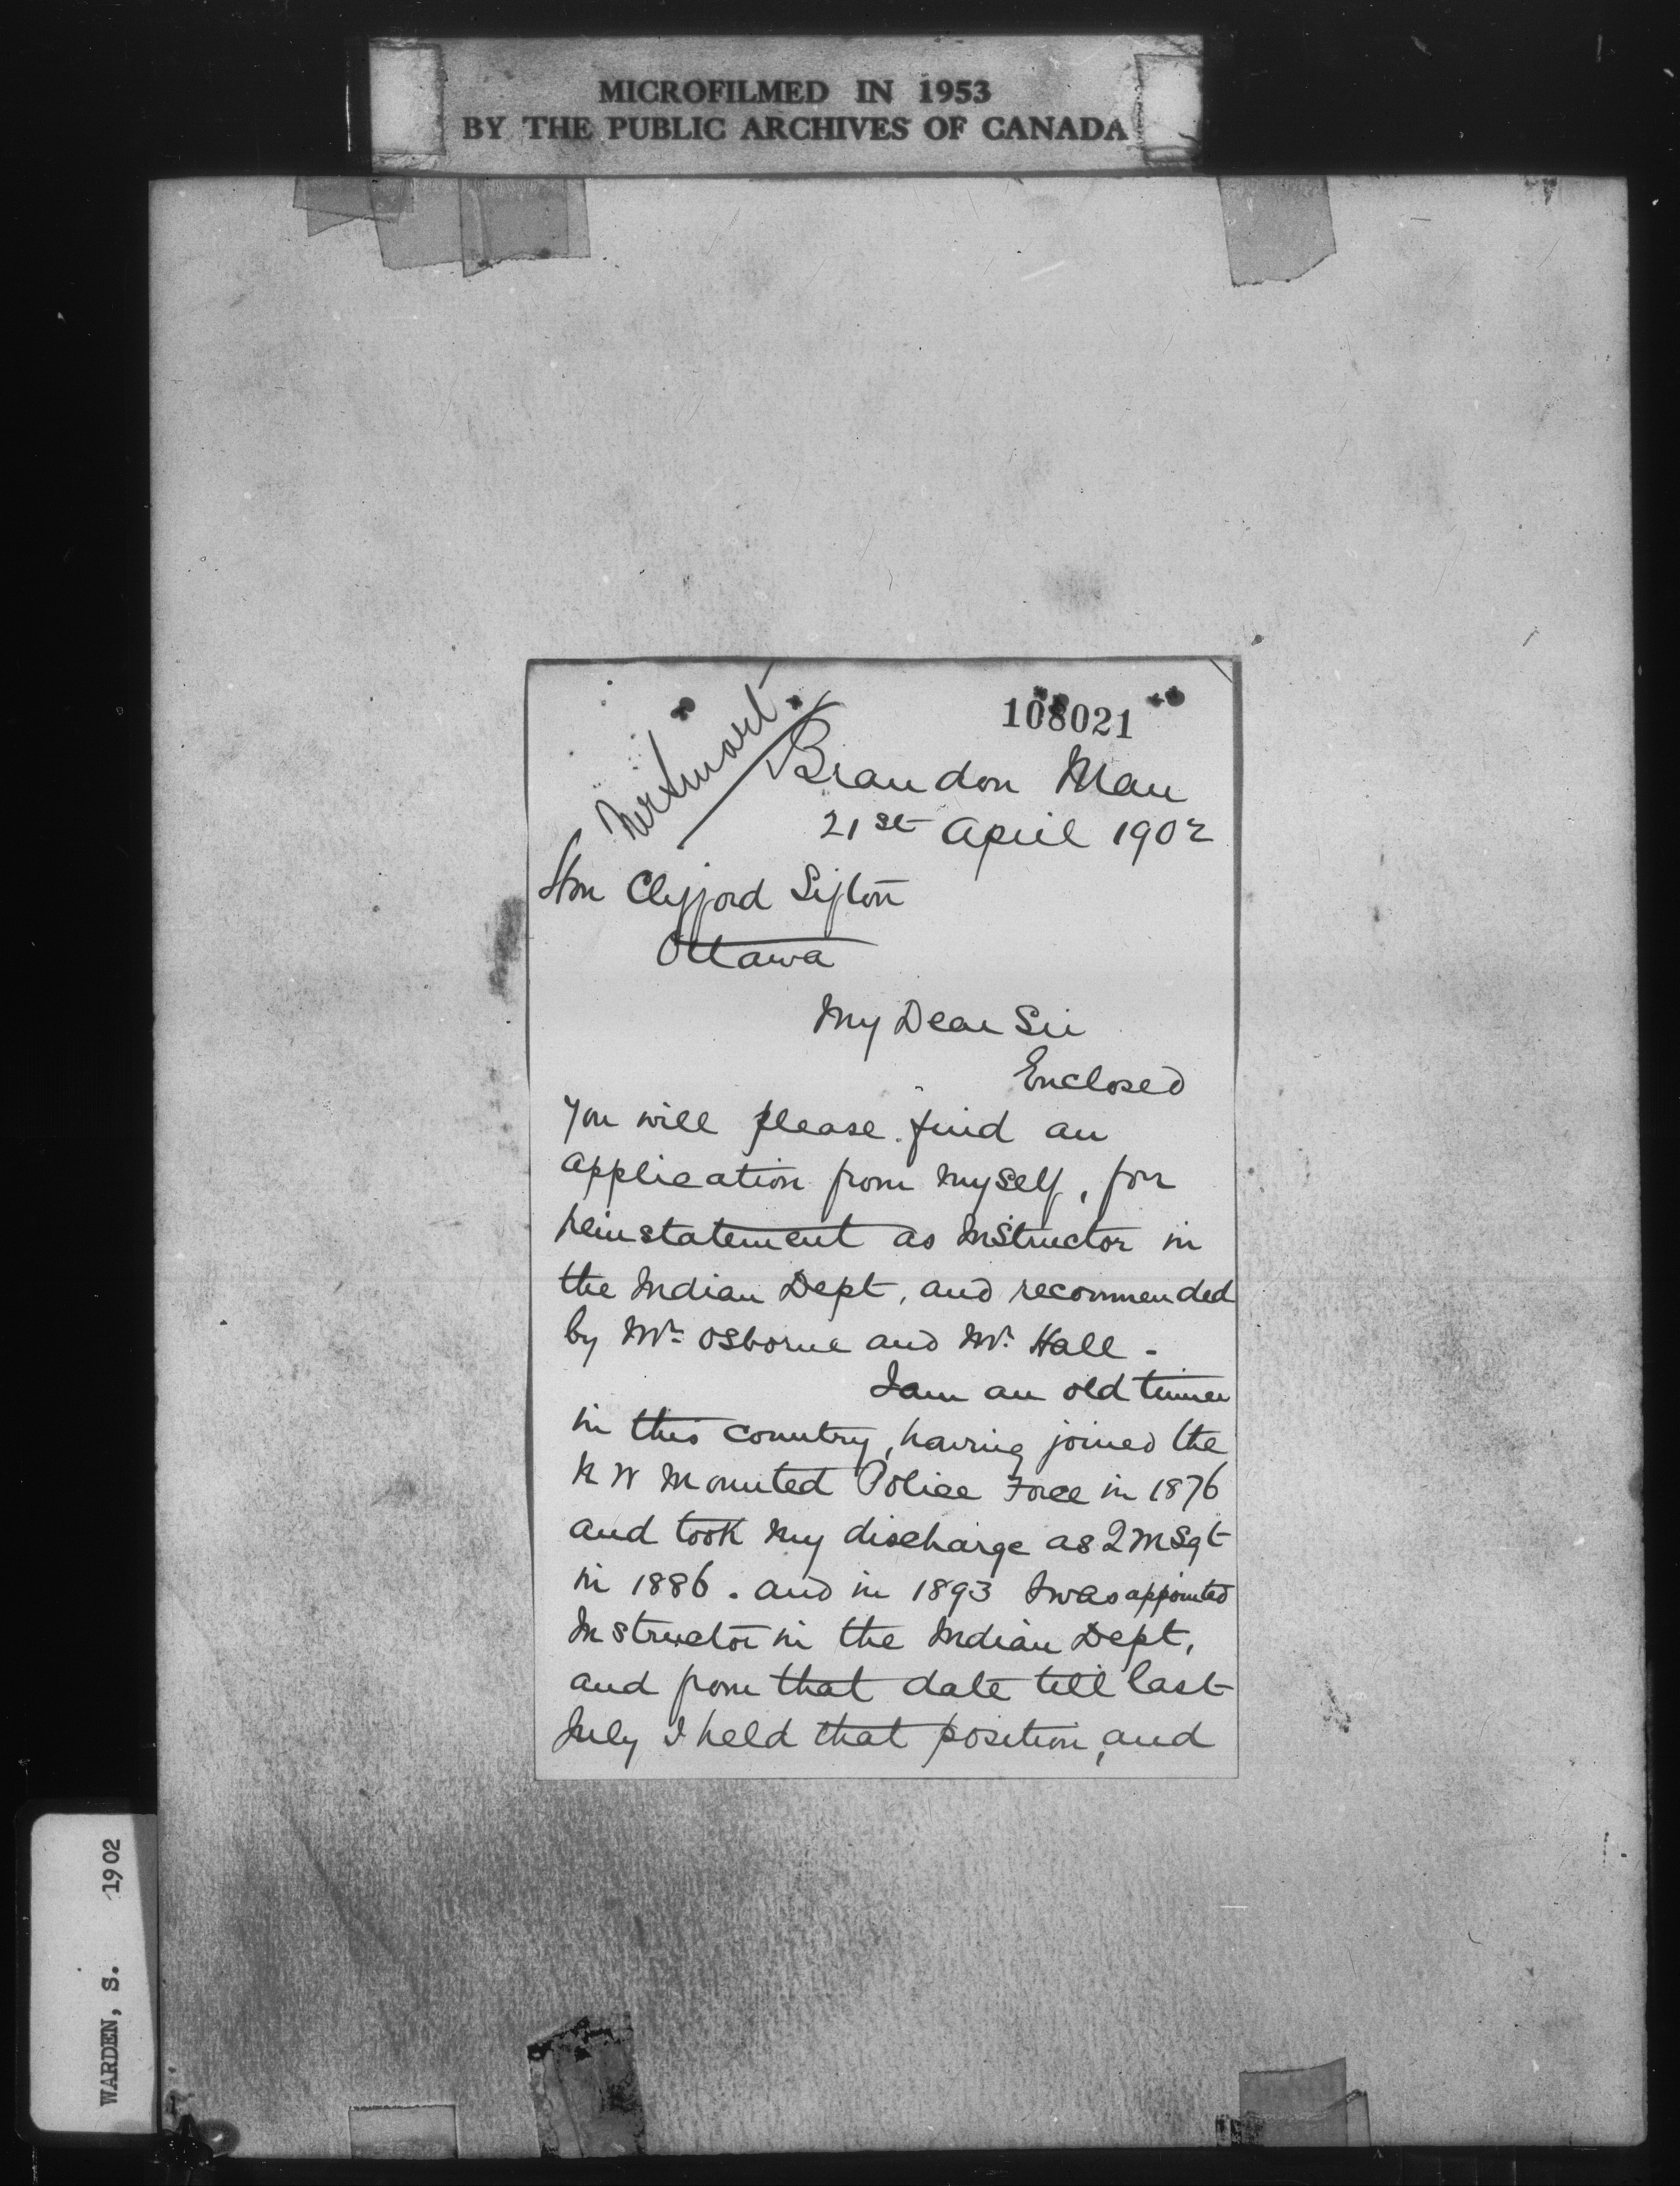 MICROFILMED IN 1953
BY THE PUBLIC ARCHIVES OF CANADA
108021
Mr Smart
Brandon Man
21st April 1902
Hon Clifford Sifton
Ottawa
My Dear Sir
Enclosed
you will please find an
application from myself, for
reinstatement as Instructor in
the Indian Dept, and recommended
by Mr Osborne and Mr. Hall -
I am an old timer
in this country, having joined the
N W Mounted Police Force in 1876
and took my discharge as Q M Sgt
in 1886. and in 1893 I was appointed
Instructor in the Indian Dept,
and from that date till last
July I held that position, and
WARDEN, S. 1902